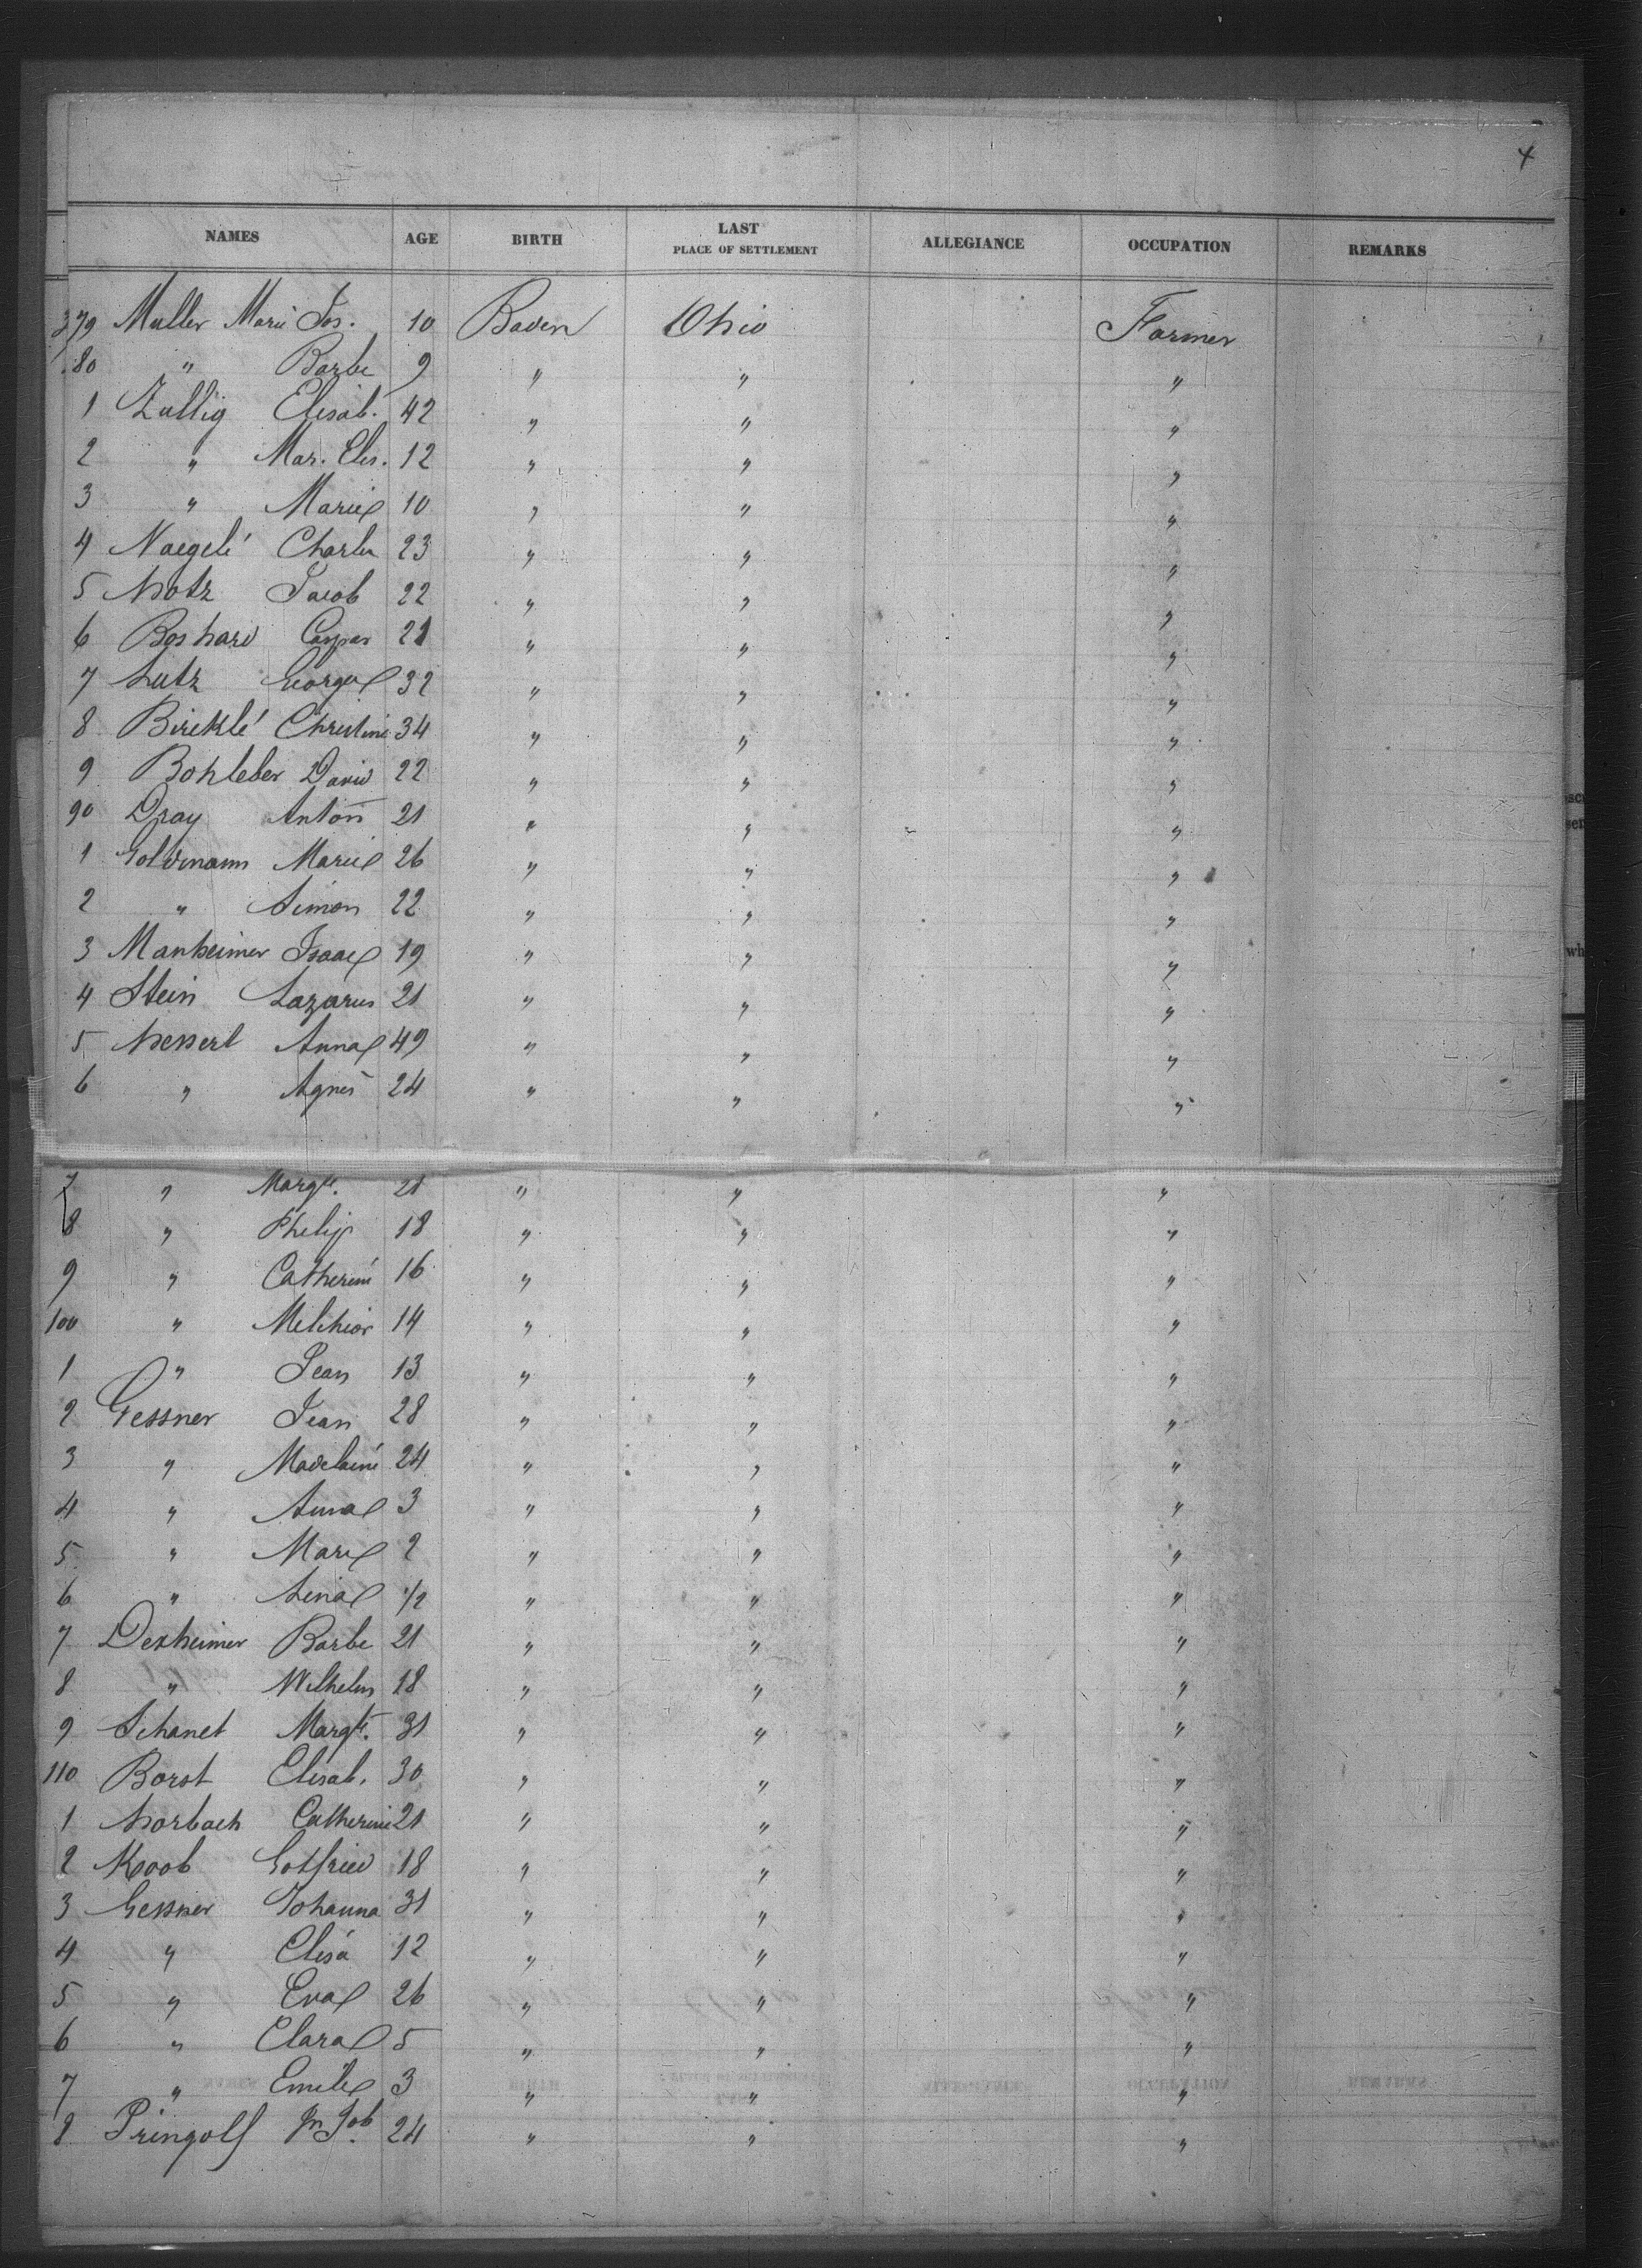 4
NAMES AGE BIRTH LAST PLACE OF SETTLEMENT ALLEGIANCE OCCUPATION REMARKS
379 Muller Marie Jos. 10 Baden Ohio Farmer
80 " Barbe 9 " " "
1 Zullig Elisab. 42 " " "
2 " Mar. Elis. 12 " " "
3 " Marie 10 " " "
4 Naegelé Charles 23 " " "
5 Notz Jacob 22 " " "
6 Boshard Caspar 21 " " "
7 Lutz George 32 " " "
8 Bireklé Christine 34 " " "
9 Bohleber David 22 " " "
90 Dray Anton 21 " " "
1 Goldmann Marie 26 " " "
2 " Simon 22 " " "
3 Manheimer Isaac 19 " " "
4 Stein Lazarus 21 " " "
5 Anna 49 " " "
6 " Agnes 24 " " "
7 " Margte. 21 " " "
8 " Philip 18 " " "
9 " Catherine 16 " " "
100 " Melchior 14 " " "
1 " Jean 13 " " "
2 Gessner Jean 28 " " "
3 " Madelaine 24 " " "
4 " Anna 3 " " "
5 " Marie 2 " " "
6 " Lena 1/2 " " "
7 Dexheimer Barbe 21 " " "
8 " Wilhelm 18 " " "
9 Schanet Margte. 31 " " "
110 Borst Elisab. 30 " " "
1 Horbach Catherine 21 " " "
2 Koob Gottfried 18 " " "
3 Gessner Johanna 31 " " "
4 " Elisa 12 " " "
5 " Eva 26 " " "
6 " Clara 5 " " "
7 " Emile 3 " " "
8 Pringolf Jn Job 24 " " "